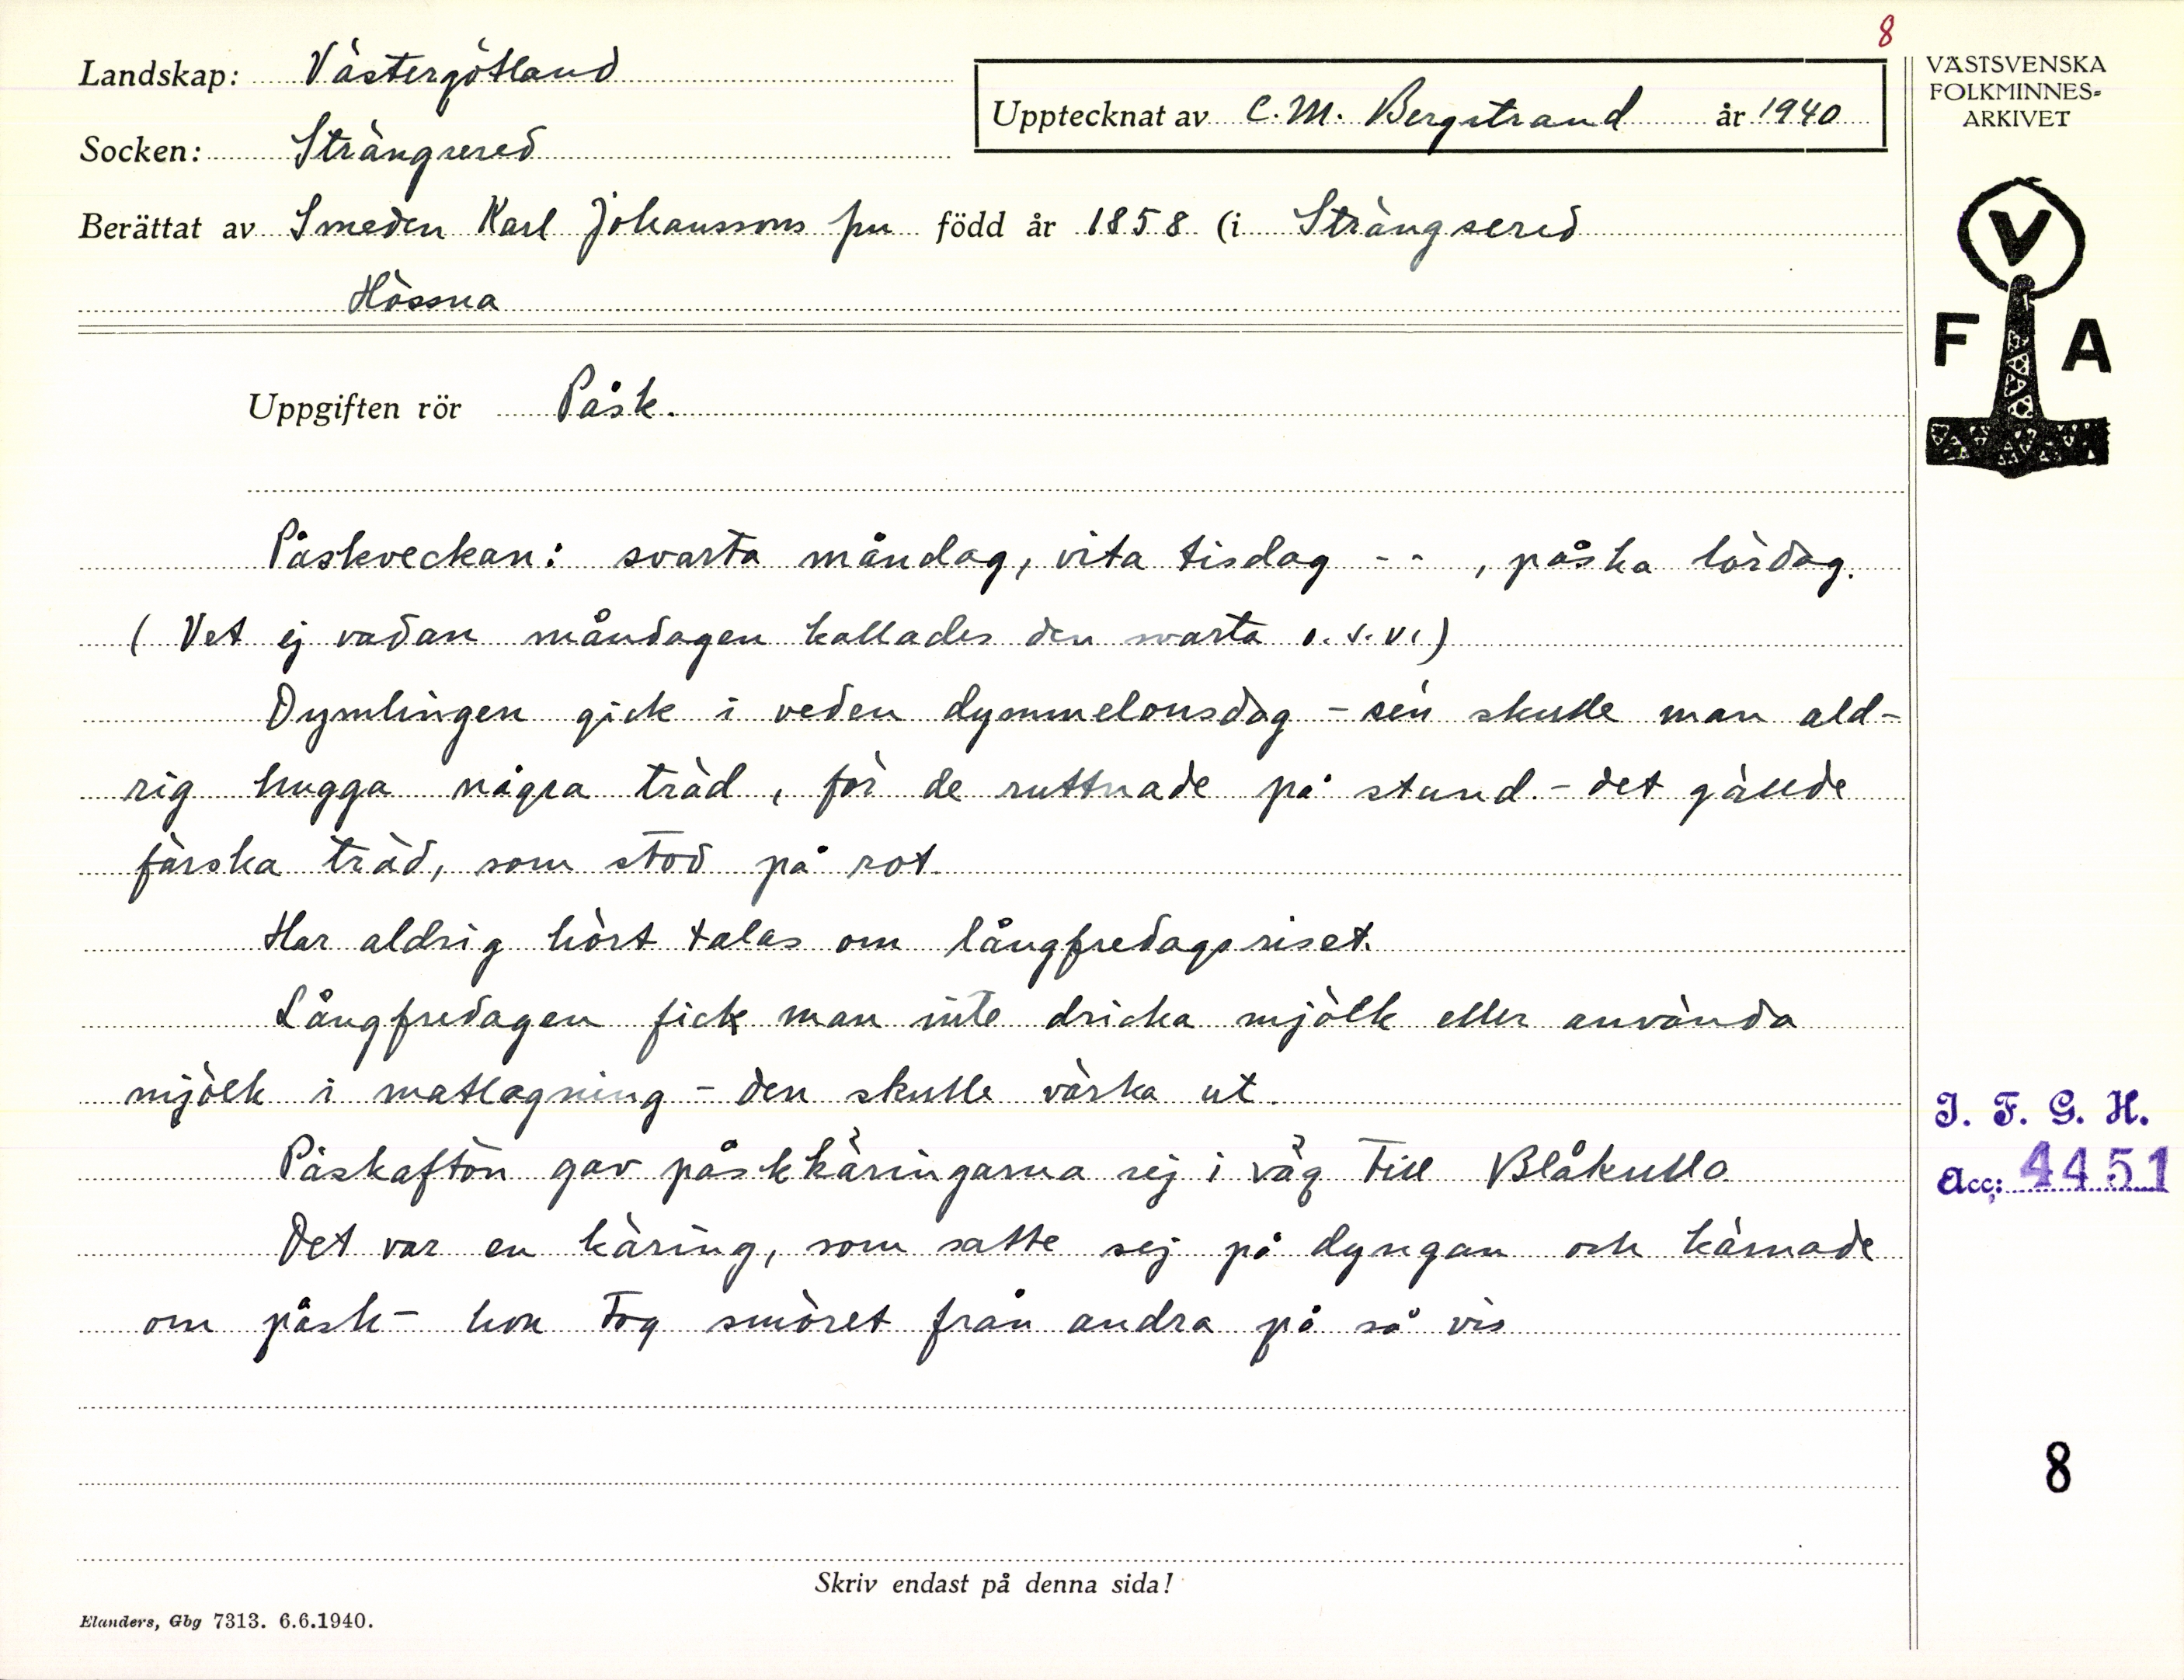 8
Landskap: Västergötland
Socken: Strängsered
Upptecknat av C. M. Bergstrand år 1940
Berättat av Smeden Karl Johanssons fru född år 1858 (i Strängsered
Hössna
VÄSTSVENSKA
FOLKMINNES-
ARKIVET
V
F A
Uppgiften rör Påsk.
Påskveckan: svarta måndag, vita tisdag - - , påska lördag.
( Vet ej vadan måndagen kallades den svarta o. s. v.)
Dymlingen gick i veden dymmelonsdag - sén skulle man ald-
rig hugga några träd, för de ruttnade på stund. - det gällde
färska träd, som stod på rot.
Har aldrig hört talas om långfredagsriset.
Långfredagen fick man inte dricka mjölk eller använda
mjölk i matlagning - den skulle värka ut.
Påskafton gav påskkäringarna sej i väg till Blåkulla.
Det var en käring, som satte sej på dyngan och kärnade
om påsk - hon tog smöret från andra på så vis
I. F. G. H.
Acc: 4451
8
Skriv endast på denna sida!
Elanders, Gbg 7313. 6.6.1940.